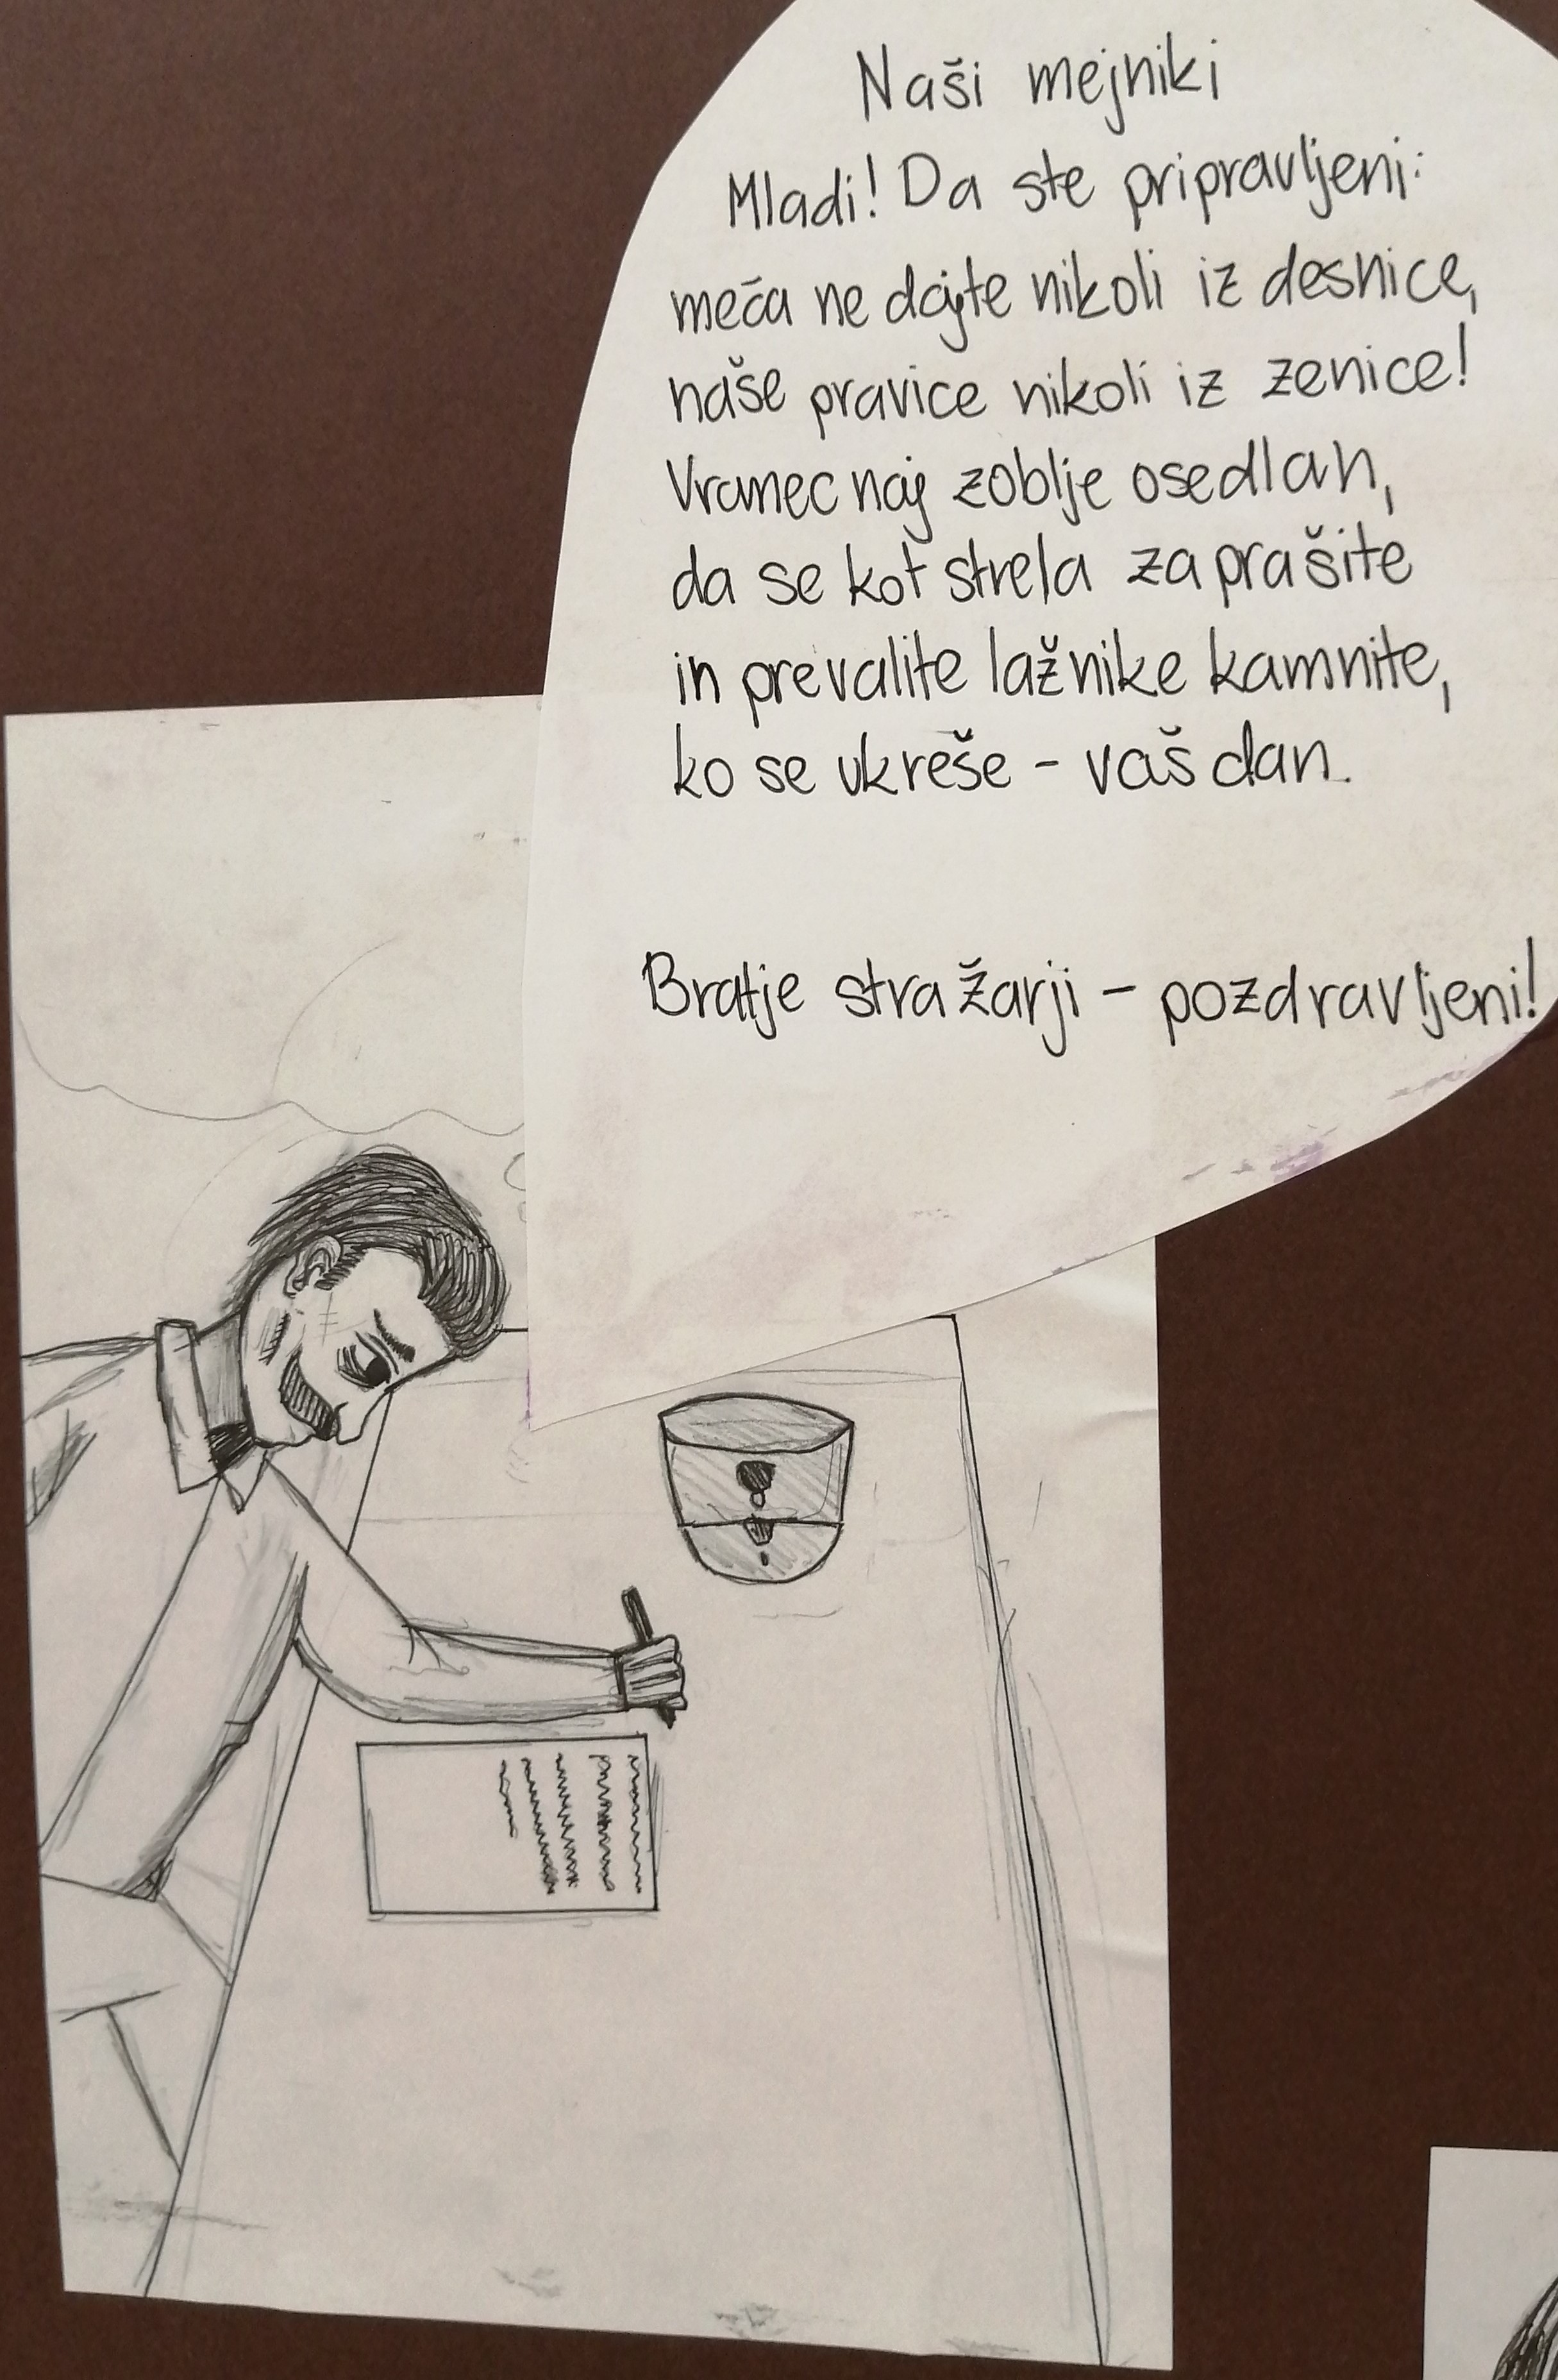 Naši mejniki
Mladi! Da ste pripravljeni:
meča ne dajte nikoli iz desnice,
naše pravice nikoli iz zenice!
Vranec naj zoblje osedlan,
da se kot strela zaprašite
in prevalite lažnike kamnite,
ko se ukreše - vaš dan.
Bratje stražarji - pozdravljeni!